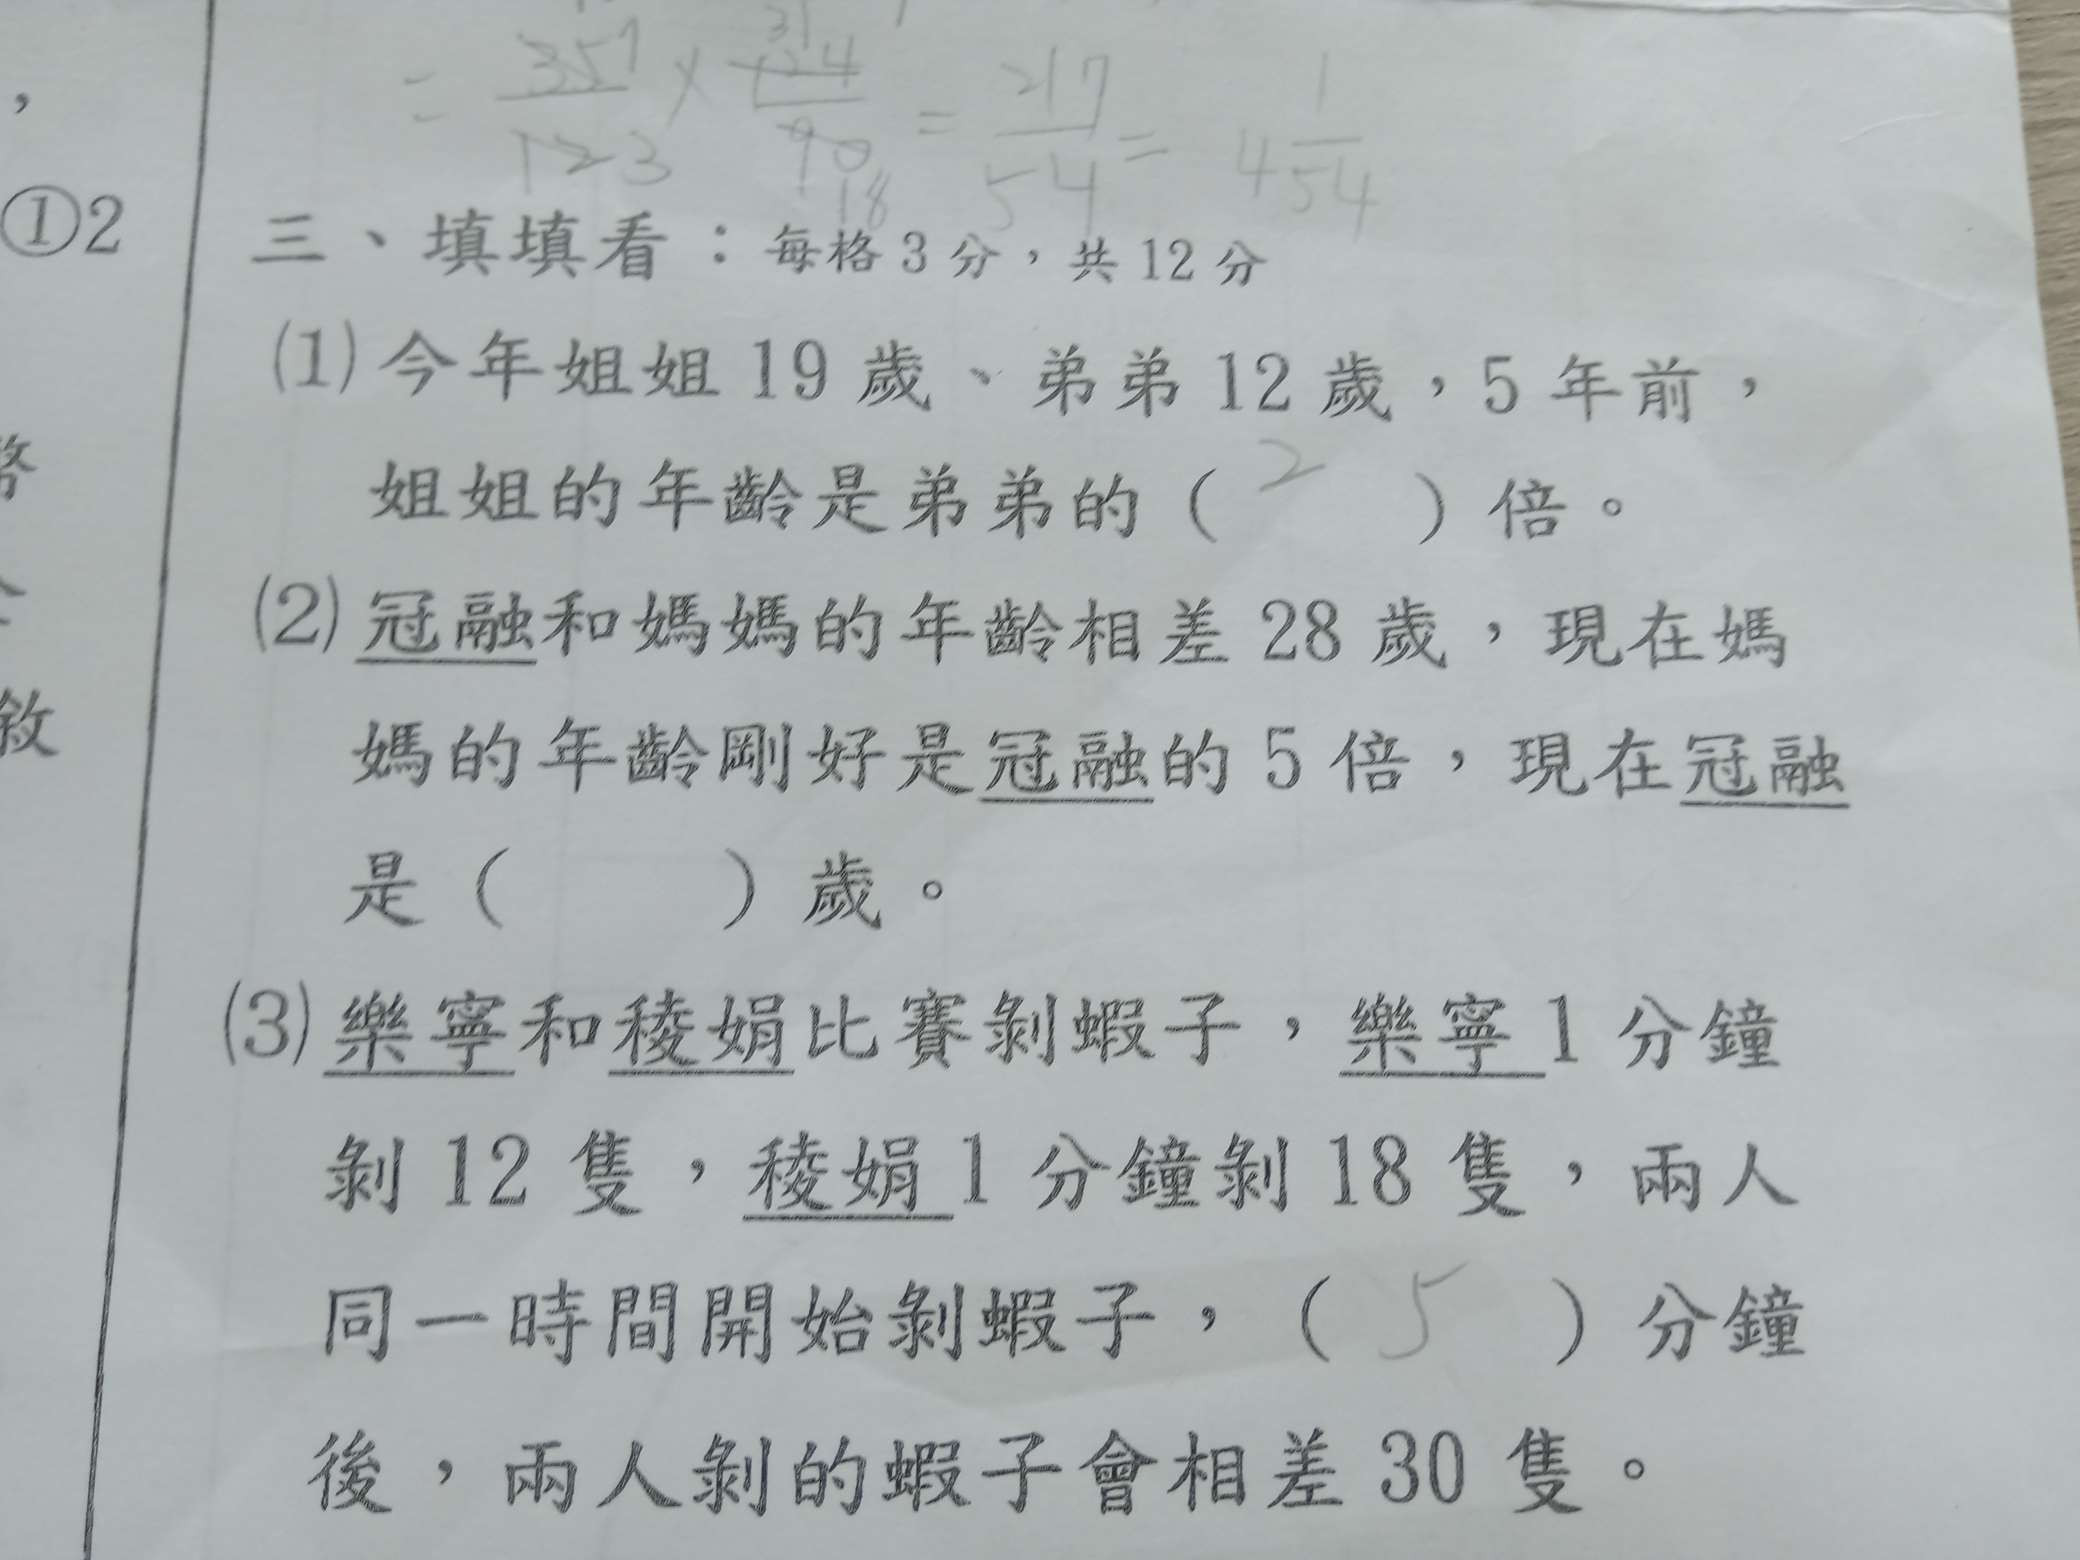 = 357/123 × 124/90 = 217/54 = 4 1/54
31
18
，
①2
幣
敘
三、填填看：每格3分，共12分
(1)今年姐姐19歲、弟弟12歲，5年前，
姐姐的年齡是弟弟的（2）倍。
(2)冠融和媽媽的年齡相差28歲，現在媽
媽的年齡剛好是冠融的5倍，現在冠融
是（ ）歲。
(3)樂寧和稜娟比賽剝蝦子，樂寧1分鐘
剝12隻，稜娟1分鐘剝18隻，兩人
同一時間開始剝蝦子，（5）分鐘
後，兩人剝的蝦子會相差30隻。